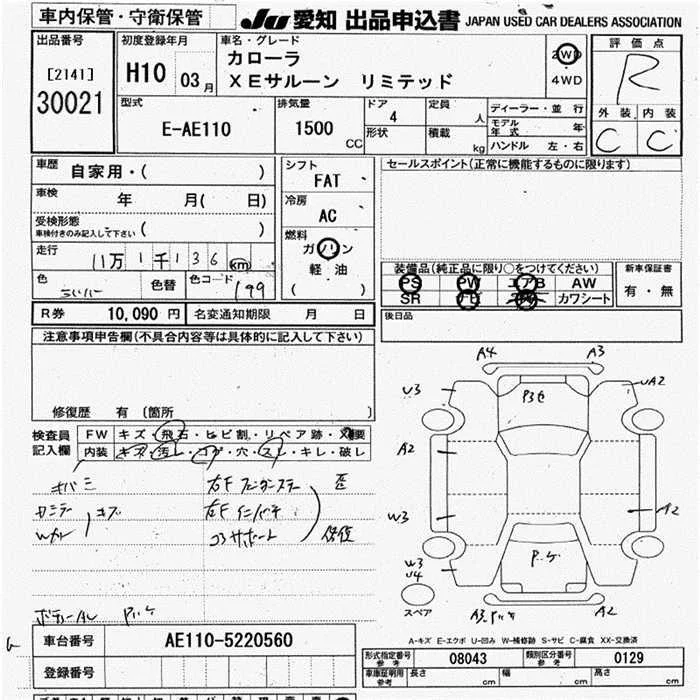 車内保管・守衛保管
JU 愛知 出品申込書 JAPAN USED CAR DEALERS ASSOCIATION
出品番号
[2141]
30021
初度登録年月
H10 03月
車名・グレード
カローラ
XEサルーン リミテッド
2WD
4WD
評価点
R
外装 内装
C C
型式
E-AE110
排気量
1500 CC
ドア
4
形状
定員
人
積載
kg
ディーラー・並行
モデル年式 年
ハンドル 左・右
車歴 自家用・( )
車検 年 月( 日)
受検形態
車検付きのみ記入して下さい ( )
走行 11万1千136km
色 色替 色コード 199
シフト
FAT
冷房
AC
燃料
ガソリン
軽油
( )
セールスポイント(正常に機能するものに限ります)
装備品(純正品に限り○をつけてください)
PS PW エアB AW
SR ナビ カワシート
新車保証書
有・無
後日品
R券 10,090円 名変通知期限 月 日
注意事項申告欄(不具合内容等は具体的に記入して下さい)
修復歴 有(箇所 )
検査員記入欄
FW キズ・飛石・ヒビ割・リペア跡・X要
内装 キズ・汚レ・コゲ・穴・スレ・キレ・破レ
キバミ
右F
歪
右F インパネ
コアサポート
A4 A3
U3 UA2
A2
W3 A2
W3
U4
A3 A2
スペア
A-キズ E-エクボ U-凹み W-補修跡 S-サビ C-腐食 XX-交換済
車台番号 AE110-5220560
登録番号
形式指定番号
参考
08043
類別区分番号
参考
0129
車両証明用
参考
長さ cm
幅 cm
高さ cm